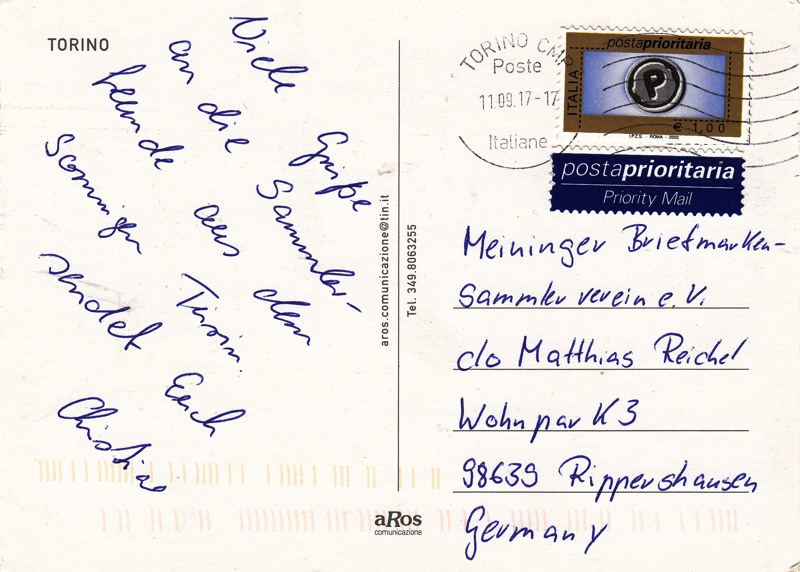 TORINO
Viele Grüße
an die Sammler-
freunde aus dem
sonnigen Turin.
sendet Euch
Christian
aros.comunicazione@tin.it
Tel. 349.8063255
TORINO CMP
Poste
11.09.17-17
Italiane
postaprioritaria
ITALIA
€ 1,00
I.P.Z.S. - ROMA - 2002
postaprioritaria
Priority Mail
Meininger Briefmarken-
Sammlerverein e.V.
c/o Matthias Reichel
Wohnpark 3
98639 Rippershausen
Germany
aRos
comunicazione